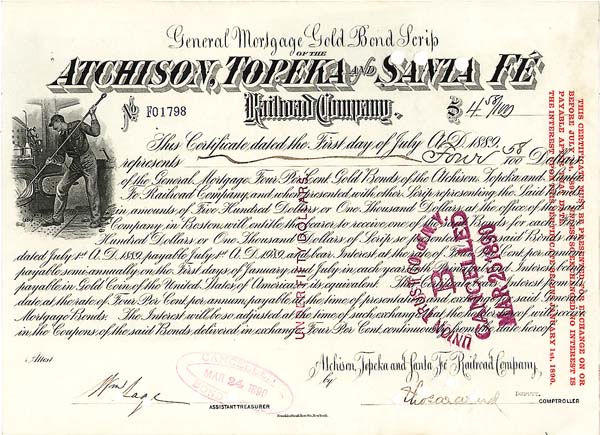 General Mortgage Gold Bond Scrip
OF THE
ATCHISON, TOPEKA AND SANTA FÉ
Railroad Company.
No F01798
$ 4 58/100
This Certificate dated the First day of July A.D. 1889,
represents Four 58/100 Dollars
of the General Mortgage Four Per Cent Gold Bonds of the Atchison, Topeka and Santa
Fe Railroad Company, and when presented with other Scrip representing the Said Bonds
in amounts of Five Hundred Dollars or One Thousand Dollars at the office of the
Company in Boston, will entitle the bearer to receive, one of the said Bonds for each Five
Hundred Dollars or One Thousand Dollars of Scrip so presented. The said Bonds are
dated July 1st A.D. 1889, payable July 1st A.D. 1989, and bear Interest at the rate of Four Per Cent per annum
payable semi-annually on the First days of January and July in each year, both Principal and Interest
payable in Gold Coin of the United States of America or its equivalent. The
date at the rate of Four Per Cent per annum, payable at the time of presentation and exchange for said General
Mortgage Bonds. The Interest will be so adjusted at the time of such exchange that the holder will receive
in the Coupons of the said Bonds delivered in exchange Four Per Cent continuously from the date hereof.
THIS CERTIFICATE MUST BE PRESENTED FOR EXCHANGE ON OR
BEFORE JULY 1st, 1890, AND UNLESS SO EXCHANGED, NO INTEREST IS
PAYABLE AFTER THAT DATE.
THE INTEREST UPON THIS SECURITY COMMENCES JANUARY 1st, 1890.
UNDER FIFTY DOLLARS
UNION TRUST CO. OF N.Y.
B
CANCELLED
MAR 25 1890
Attest
Atchison, Topeka and Santa Fé Railroad Company,
by
CANCELLED
MAR 24 1890
BOND
Wm Sage
ASSISTANT TREASURER
DEPUTY
COMPTROLLER